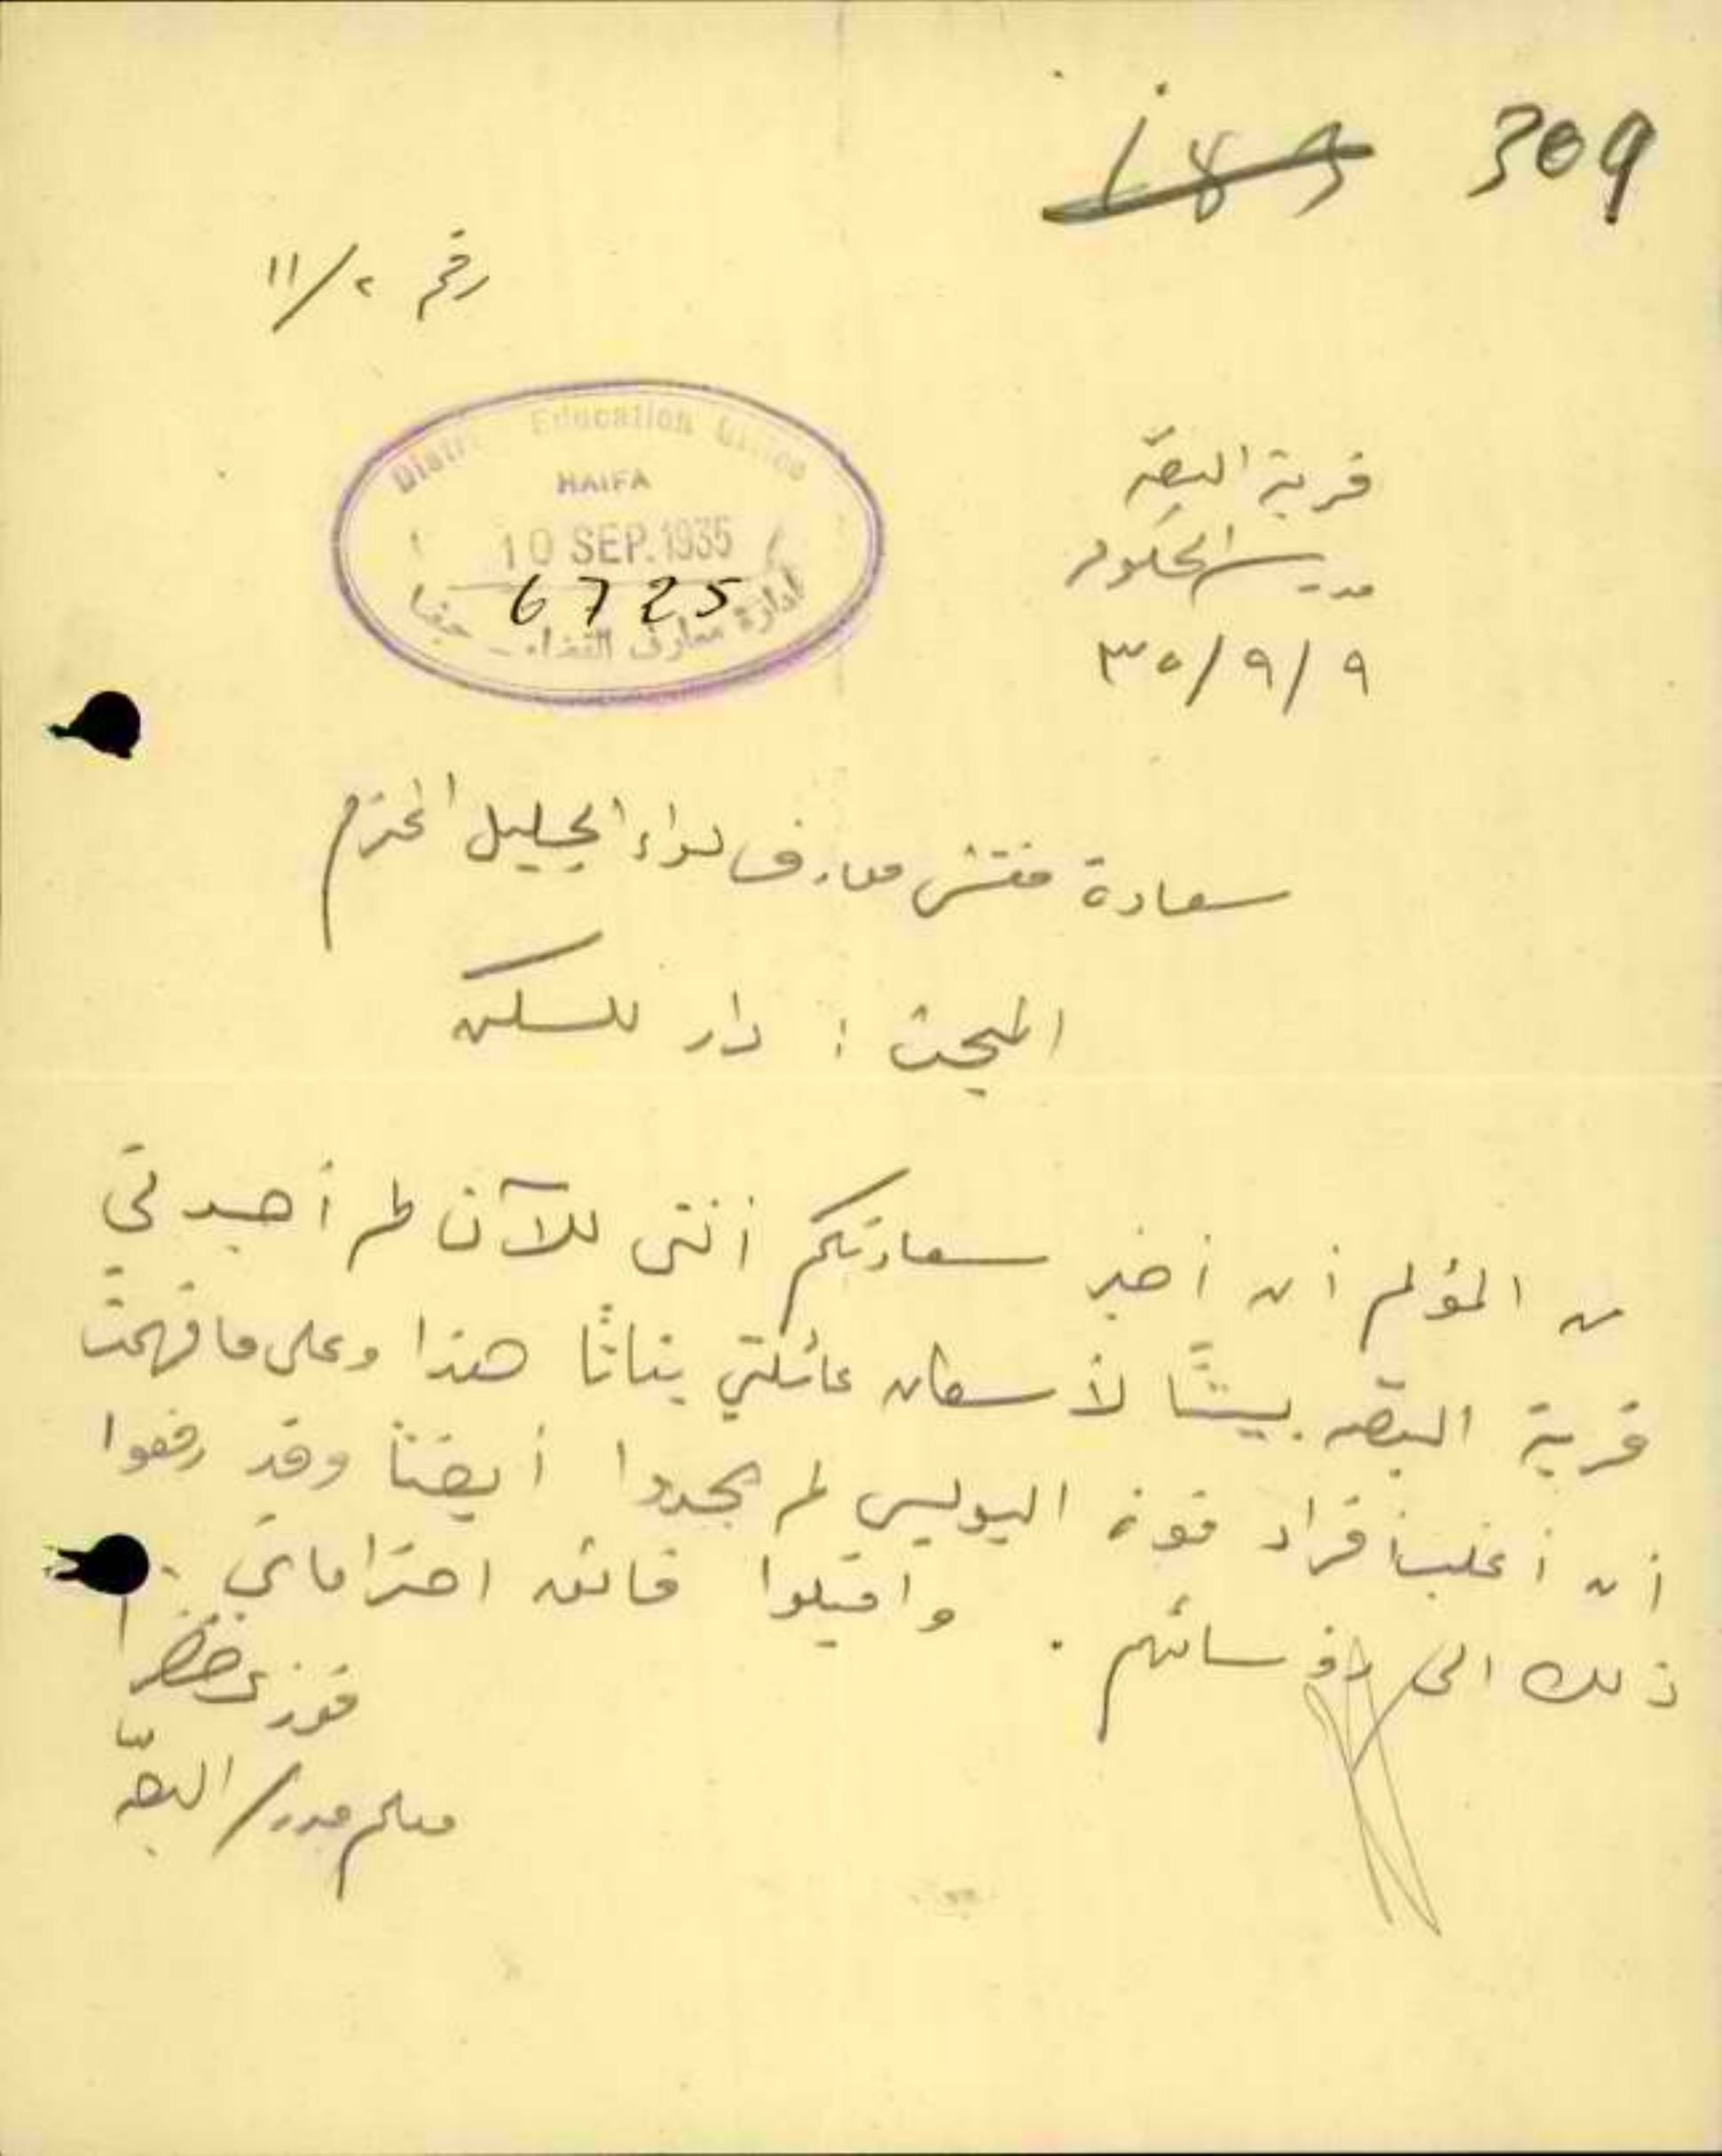 309
رقم ٢/١١
District Education Office
HAIFA
10 SEP. 1935
6725
ادارة معارف القضاء - حيفا
قرية البصّه
مدرسة الحكومه
٩/٩/٣٥
سعادة مفتش معارف لواء الجليل المحترم
المبحث : دار للسكن
من المؤلم أن أخبر سعادتكم أنني للآن لم أجد في
قرية البصّه بيتًا لأسكان عائلتي بتاتًا هذا وعلى ما فهمت
أن أغلب أفراد قوة البوليس لم يجدوا أيضًا وقد رفعوا
ذلك الى رؤسائهم . واقبلوا فائق احتراماتي .
فوزي خضر
معلم مدرسة / البصّه